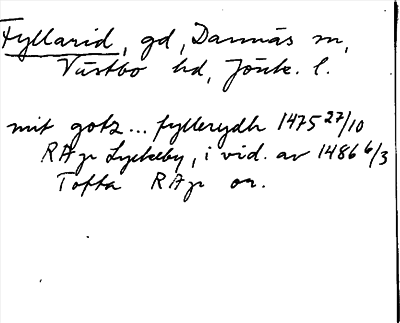 Fyllarid, gd, Dannäs sn,
Västbo hd, Jönk. l.
mit gotz ... fyllerydh 1475 27/10
RAp Lyckeby, i vid. av 1486 6/3
Tofta RAp or.